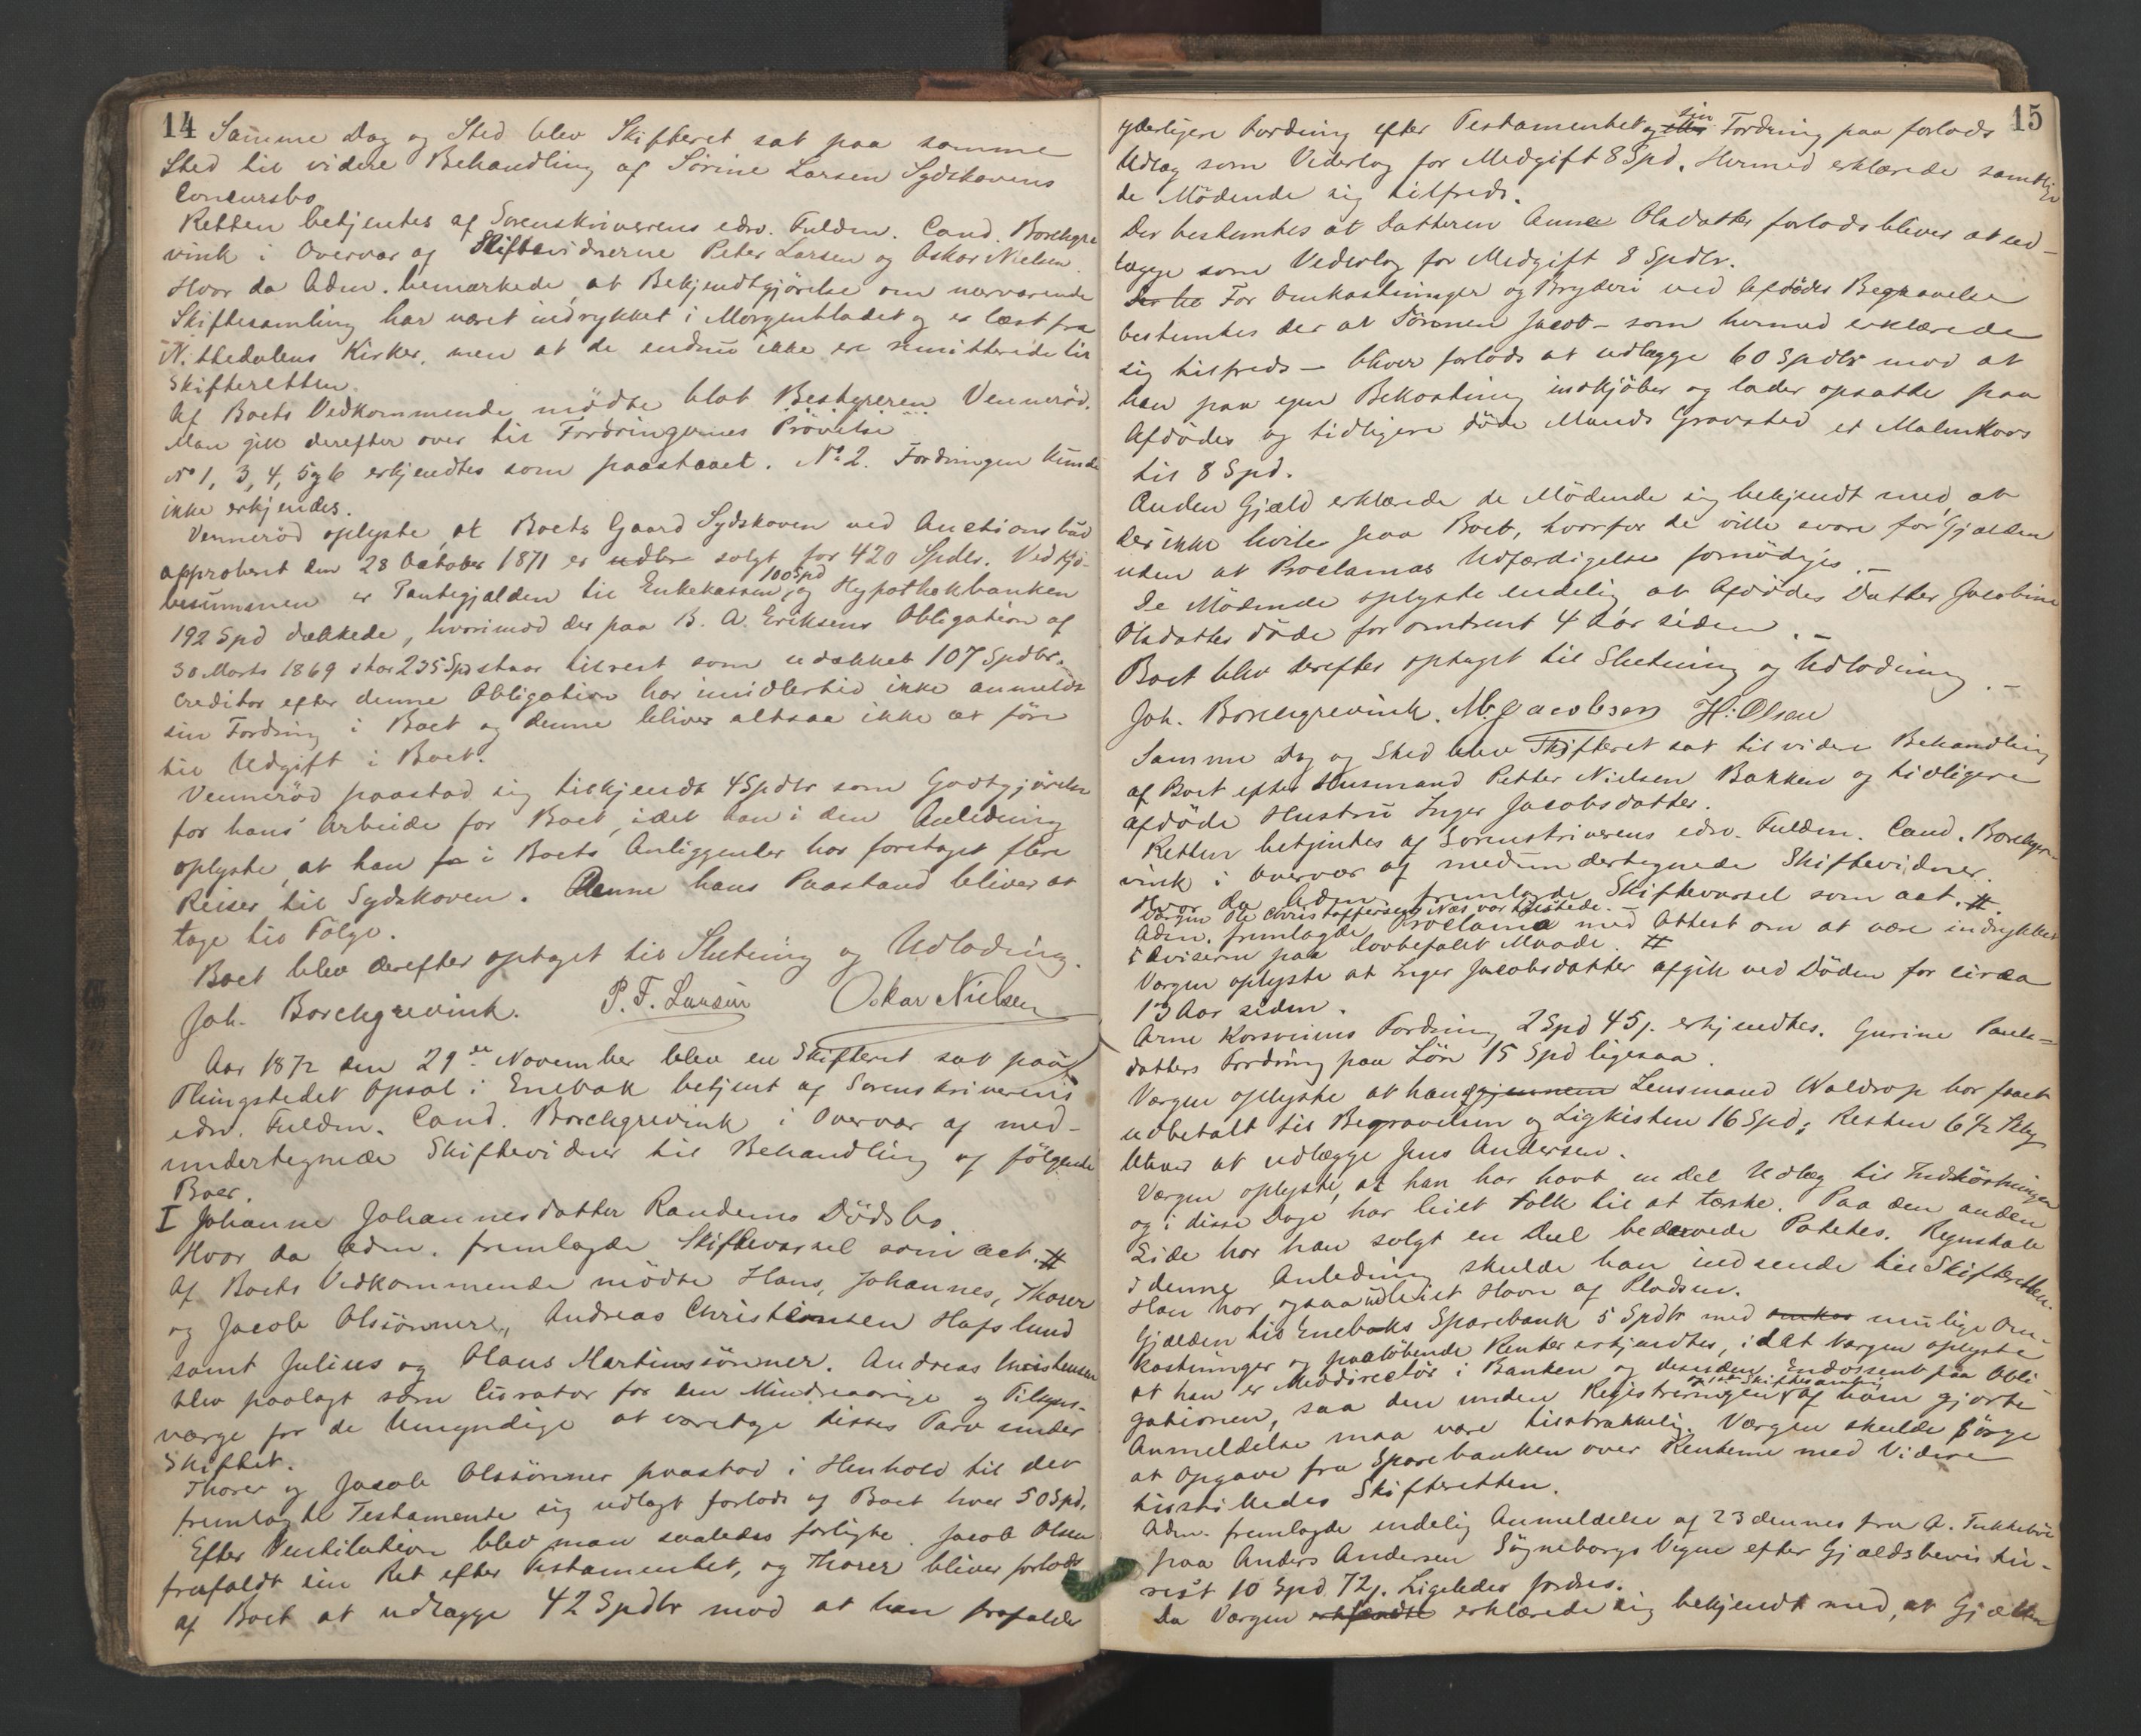 14
Samme Dag og Sted blev Skifteret sat paa samme
Sted til videre Behandling af Sørine Larsen Sydskovens
Concursbo
Retten betjentes af Sorenskriverens edsv. Fuldm. Cand. Borchgre
vink i Overvær af Skiftevidnerne Peter Larsen og Oskar Nielsen.
Hvor da Adm. bemærkede, at Bekjendtgjørelse om nærværende
Skiftesamling har været indrykket i Morgenbladet og er læst fra
Nittedalens Kirker, men at de endnu ikke ere remitterede til
Skifteretten.
Af Boets Vedkommende mødte blot Bestyreren Vennerød.
Man gik derefter over til Fordringernes Prøvelse
No 1, 3, 4, 5 og 6 erkjendtes som paastaaet. No 2. Fordringen kunde
ikke erkjendes.
Vennerød oplyste, at Boets Gaard Sydskoven ved Auctionsbud
approberet den 28 October 1871 er udbr solgt for 420 Spdlr. Ved Kjø-
besummen er Pantegjælden til Enkekassen 100 Spd og Hypothekbanken
192 Spd dækkede, hvorimod der paa B. A. Eriksens Obligation af
30 Marts 1869 stor 235 Spd staar tilrest som udækket 107 Spdlr.
Creditor efter denne Obligation har imidlertid ikke anmeldt
sin Fordring i Boet og denne bliver altsaa ikke at føre
til Udgift i Boet.
Vennerød paastod sig tilkjendt 4 Spdlr som Godtgjørelse
for hans Arbeide for Boet, idet han i den Anledning
oplyste, at han fo i Boets Anliggender har foretaget flere
Reiser til Sydskoven. Denne hans Paastand bliver at
tage til Følge.
Boet blev derefter optaget til Slutning og Udlodning.
Joh. Borchgrevink. P. F. Larsen Oskar Nielsen
Aar 1872 den 29de November blev en Skifteret sat paa
Thingstedet Opsal i Enebak betjent af Sorenskriverens
edsv. Fuldm. Cand. Borchgrevink i Overvær af med-
undertegnede Skiftevidner til Behandling af følgende
Boer.
I Johanne Johannesdatter Randems Dødsbo.
Hvor da Adm. fremlagde Skiftevarsel som act. #
Af Boets Vedkommende mødte Hans, Johannes, Thorer
og Jacob Olssønner, Andreas Christiansen Hafslund
samt Julius og Hans Martinssønner. Andreas Christensen
blev paalagt som Curator for den Mindreaarige og Tilsyns-
værge for de Umyndige at varetage disses Tarv under
Skiftet.
Thorer og Jacob Olssønner paastod i Henhold til det
fremlagte Testamente sig udlagt forlods af Boet hver 50 Spd.
Efter Ventilation blev man saaledes forligte. Jacob Olsen
frafaldt sin Ret efter Testamentet, og Thorer bliver forlods
af Boet at udlægge 42 Spdlr mod at han frafalder
15
yderligere Fordring efter Testamentet og sin Fordring paa forlods
Udlæg som Vederlag for Medgift 8 Spd. Hermed erklærede samtlige
de Mødende sig tilfreds.
Der bestemtes at Datteren Anne Olsdatter forlods bliver at ud-
lægge som Vederlag for Medgift 8 Spdlr.
Der be For Omkostninger og Bryderi ved Afdødes Begravelse
bestemtes der at Sønnen Jacob – som hermed erklærede
sig tilfreds – bliver forlods at udlægge 60 Spdlr mod at
han paa egen Bekostning indkjøber og lader opsætte paa
Afdødes og tidligere døde Mands Gravsted et Malmkors
til 8 Spd.
Anden Gjæld erklærede de Mødende sig bekjendt med, at
der ikke hvile paa Boet, hvorfor de ville svare for Gjælden
uden at Proclamas Udfærdigelse fornødiges.–
De Mødende oplyste endelig at Afdødes Datter Jacobine
Olsdatter døde for omtrent 4 Aar siden.–
Boet blev derefter optaget til Slutning og Udlodning.–
Joh. Borchgrevink. M. Jacobsen H: Olsen
Samme Dag og Sted blev Skifteret sat til videre Behandling
af Boet efter Husmand Petter Nielsen Bakken og tidligere
afdøde Hustru Inger Jacobsdatter.
Retten betjentes af Sorenskriverens edsv. Fuldm. Cand. Borchgre-
vink i Overvær af medundertegnede Skiftevidner.
Hvor da Adm. fremlagde Skiftevarsel som act. #
Værgen Ole Christoffersen Næs var tilstede.–
Adm. fremlagde Proclama med Attest om at være indrykket
i Aviserne paa lovbefalet Maade. #
Værgen oplyste at Inger Jacobsdatter afgik ved Døden for circa
13 Aar siden.
Arne Korsveiens Fordring 2 Spd 45 s. erkjendtes. Gurine Pauls-
datters Fordring paa Løn 15 Spd ligesaa.
Værgen oplyste at han gjennem Lensmand Waldrop har faaet
udbetalt til Begravelsen og Ligkisten 16 Spd; Resten 6½ Sk
bliver at udlægge Jens Andersen.
Værgen oplyste, at han har havt en Del Udlæg til Indhøstningen
og i disse Dage har leiet Folk til at tærske. Paa den anden
Side har han solgt en Deel bedærvede Potetes. Regnskab
i denne Anledning skulde han indsende til Skifteretten.
Han har ogsaa udleiet Havn af Pladsen.
Gjælden til Enebaks Sparebank 5 Spdlr med omkos mulige Om-
kostninger og paaløbende Renter erkjendtes, idet Værgen oplyste
at han er Meddirectør i Banken og desuden Endossent paa Obli-
gationen, saa den under Registreringen af ham gjorte
Anmeldelse maa være tilstrækkelig. Værgen skulde sørge
at Opgave fra Sparebanken over Renterne med Videre
tilstilledes Skifteretten.
Adm. fremlagde endelig Anmeldelse af 23 dennes fra A.
paa Anders Andersen Søgneborgs Vegne efter Gjældsbevis til-
rest 10 Spd 72 s. Ligeledes
Da Værgen erkjendte erklærede sig bekjendt med, at Gjælden